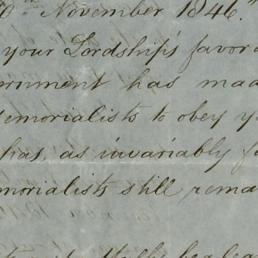 November 1846."
your Lordship's favora
ernment has mad
emorialists to obey y
has, as invariably f
morialists still rema